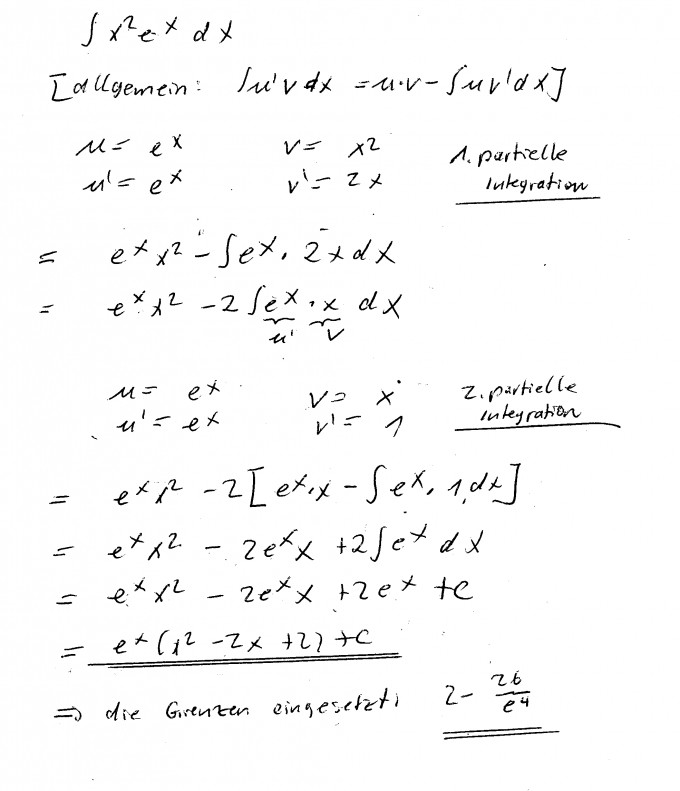 ∫ x² eˣ dx
[allgemein: ∫u'v dx = u·v - ∫uv'dx]
u = eˣ v = x² 1. partielle
u' = eˣ v' = 2x Integration
= eˣ x² - ∫eˣ · 2x dx
= eˣ x² - 2 ∫eˣ · x dx
u' v
u = eˣ v = x 2. partielle
u' = eˣ v' = 1 Integration
= eˣ x² - 2[eˣ·x - ∫eˣ · 1 dx]
= eˣ x² - 2eˣ x + 2∫eˣ dx
= eˣ x² - 2eˣ x + 2eˣ + C
= eˣ (x² - 2x + 2) + C
⇒ die Grenzen eingesetzt: 2 - 26/e⁴